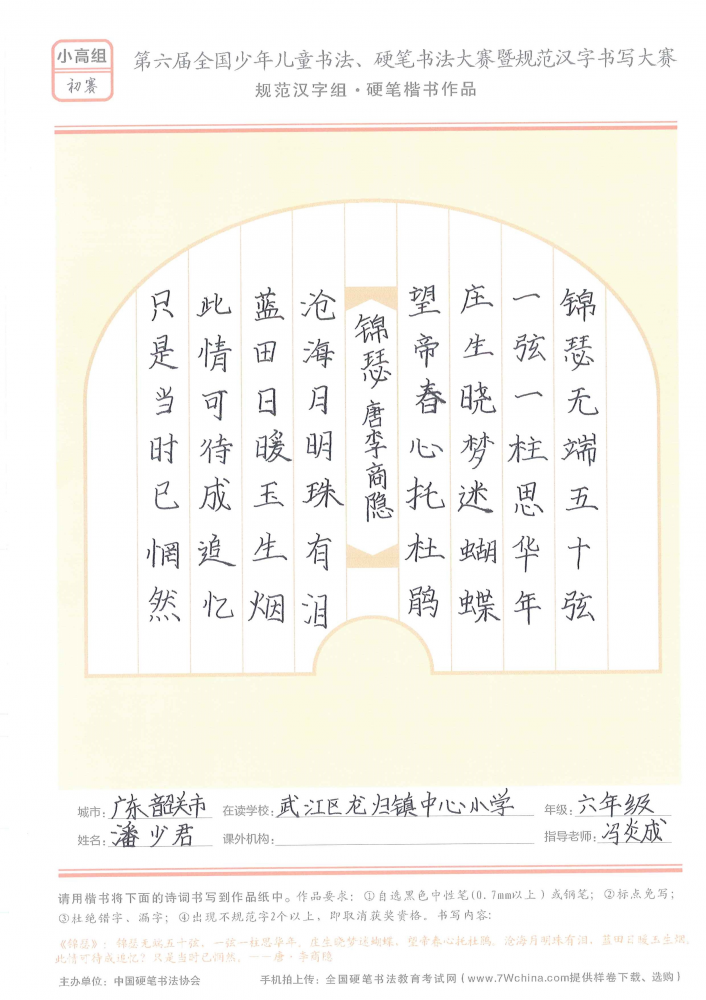 小高组
初赛
第六届全国少年儿童书法、硬笔书法大赛暨规范汉字书写大赛
规范汉字组·硬笔楷书作品
锦瑟无端五十弦
一弦一柱思华年
庄生晓梦迷蝴蝶
望帝春心托杜鹃
锦瑟 唐李商隐
沧海月明珠有泪
蓝田日暖玉生烟
此情可待成追忆
只是当时已惘然
城市:广东韶关市 在读学校:武江区龙归镇中心小学 年级:六年级
姓名:潘少君 课外机构: 指导老师:冯炎成
请用楷书将下面的诗词书写到作品纸中。作品要求:①自选黑色中性笔(0.7mm以上)或钢笔;②标点免写;
③杜绝错字、漏字;④出现不规范字2个以上,即取消获奖资格。书写内容:
《锦瑟》:锦瑟无端五十弦,一弦一柱思华年。庄生晓梦迷蝴蝶,望帝春心托杜鹃。沧海月明珠有泪,蓝田日暖玉生烟。
此情可待成追忆?只是当时已惘然。——唐·李商隐
主办单位:中国硬笔书法协会 手机拍上传:全国硬笔书法教育考试网(www.7Wchina.com提供样卷下载、选购)